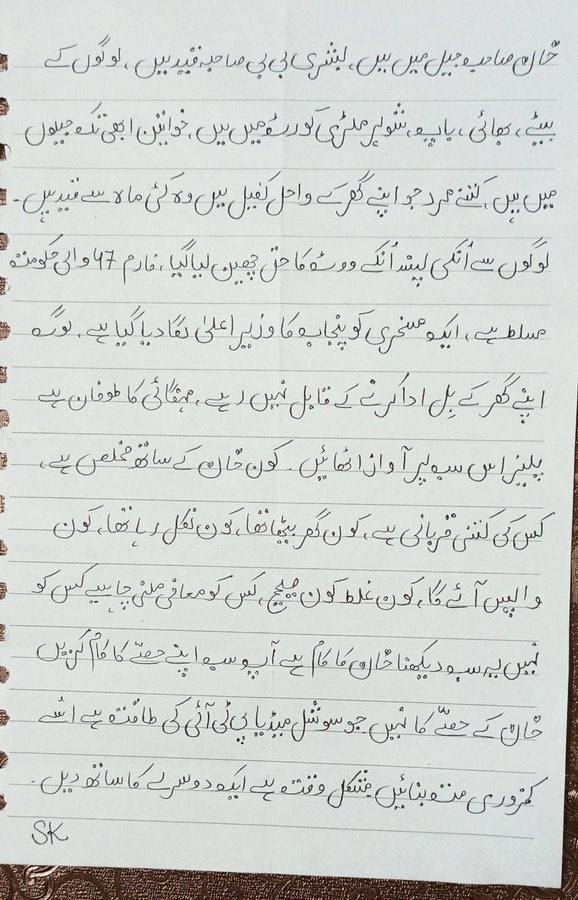 خان صاحب جیل میں ہیں، بشری بی بی صاحبہ قید ہیں، لوگوں کے
بیٹے، بھائی، باپ، شوہر ملٹری کورٹ میں ہیں، خواتین ابھی تک جیلوں
میں ہیں، کتنے مرد جو اپنے گھر کے واحل کفیل ہیں وہ کئی ماہ سے قید ہیں۔
لوگوں سے اُنکی لپند اُنکے ووٹ کا حق چھین لیا گیا، فارم 47 والی حکومت
مسلط ہے، ایک مسخری کو پنجاب کا وزیر اعلیٰ لگا دیا گیا ہے، لوگ
اپنے گھر کے بِل ادا کرنے کے قابل نہیں رہے، مہنگائی کا طوفان ہے
پلیز اس سب پر آواز اٹھائیں۔ کون خان کے ساتھ مخلص ہے،
کس کی کتنی قربانی ہے، کون گھر بیٹھا تھا، کون نکل رہا تھا، کون
واپس آئے گا، کون غلط کون صحیح، کس کو معافی ملنی چاہیے کس کو
نہیں یہ سب دیکھنا خان کا کام ہے آپ سب اپنے حصّے کا کام کریں
خان کے حصّے کا نہیں جو سوشل میڈیا پی ٹی آئی کی طاقت ہے اسے
کمزوری مت بنائیں مشکل وقت ہے ایک دوسرے کا ساتھ دیں۔
SK